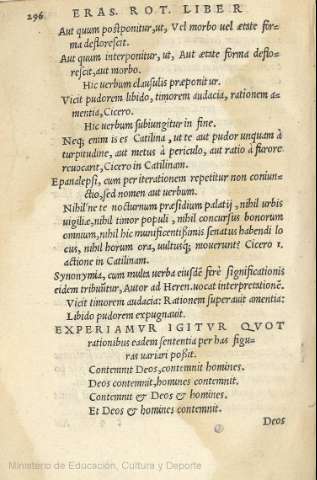 296 ERAS. ROT. LIBER
Aut quum postponitur, ut, Vel morbo uel ætate for-
ma deflorescit.
Aut quum interponitur, ut, Aut ætate forma deflo-
rescit, aut morbo.
Hic uerbum clausulis præponitur.
Vicit pudorem libido, timorem audacia, rationem a-
mentia, Cicero.
Hic uerbum subiungitur in fine.
Neq; enim is es Catilina, ut te aut pudor unquam à
turpitudine, aut metus à periculo, aut ratio à furore
reuocarit, Cicero in Catilinam.
Epanalepsi, cum per iterationem repetitur non coniun-
ctio, sed nomen aut uerbum.
Nihil'ne te nocturnum præsidium palatij, nihil urbis
uigiliæ, nihil timor populi, nihil concursus bonorum
omnium, nihil hic munitissimus senatus habendi lo
cus, nihil horum ora, uultusq; mouerunt? Cicero 1.
actione in Catilinam.
Synonymia, cum multa uerba eiusdē ferè significationis
eidem tribuūtur, Autor ad Heren. uocat interpretationē.
Vicit timorem audacia: Rationem superauit amentia:
Libido pudorem expugnauit.
EXPERIAMVR IGITVR QVOT
rationibus eadem sententia per has figu-
ras uariari poßit.
Contemnit Deos, contemnit homines.
Deos contemnit, homines contemnit.
Contemnit & Deos & homines.
Et Deos & homines contemnit.
Deos
Ministerio de Educación, Cultura y Deporte